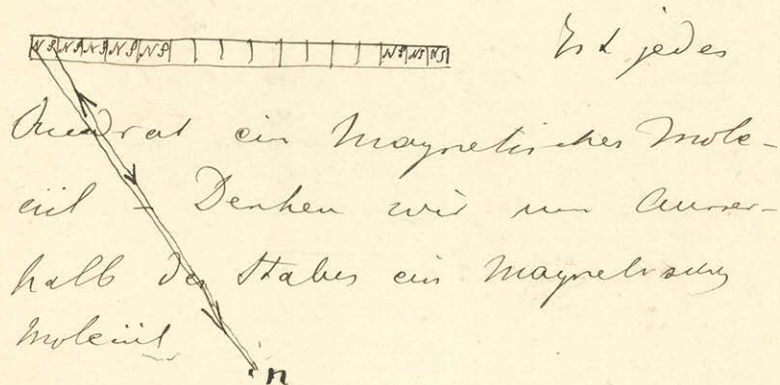 NS NS NS NS NS NS NS NS Ist jedes
Quadrat ein Magnetisches Mole-
cül – Denken wir nun Ausser-
halb des Stabes ein Magnetisches
Molecül
n